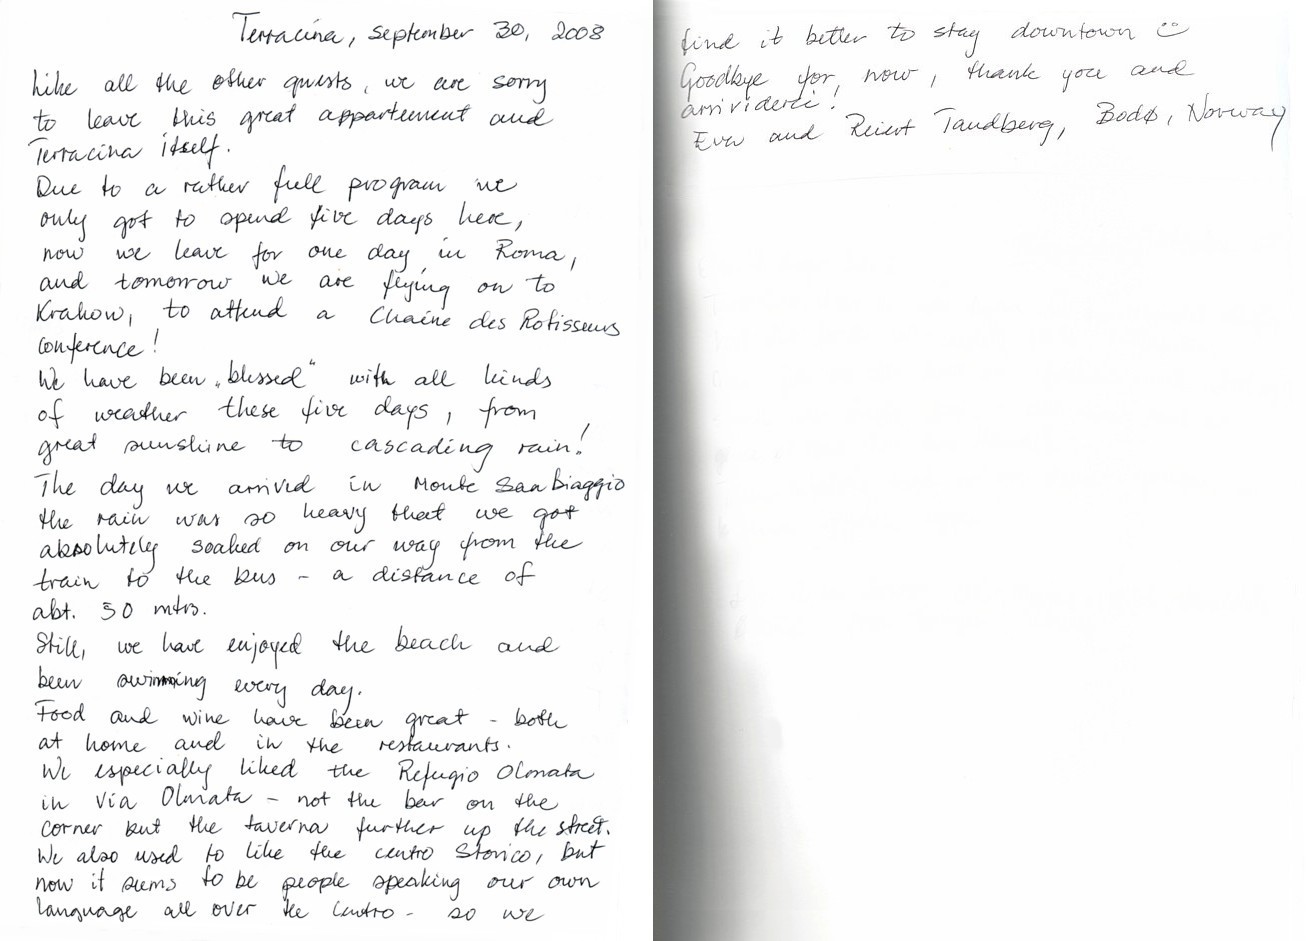 Terracina, September 30, 2008
Like all the other guests, we are sorry
to leave this great appartement and
Terracina itself.
Due to a rather full program we
only got to spend five days here,
now we leave for one day in Roma,
and tomorrow we are flying on to
Krakow, to attend a Chaine des Rotisseurs
conference!
We have been „blessed“ with all kinds
of weather these five days, from
great sunshine to cascading rain!
The day we arrived in Monte San Biaggio
the rain was so heavy that we got
absolutely soaked on our way from the
train to the bus – a distance of
abt. 50 mtrs.
Still, we have enjoyed the beach and
been swimming every day.
Food and wine have been great – both
at home and in the restaurants.
We especially liked the Refugio Olmata
in Via Olmata – not the bar on the
corner but the taverna further up the street.
We also used to like the centro Storico, but
now it seems to be people speaking our own
language all over the Centro – so we
find it better to stay downtown
Goodbye for now, thank you and
arrividerci!
Eva and Reiert Tandberg, Bodø, Norway